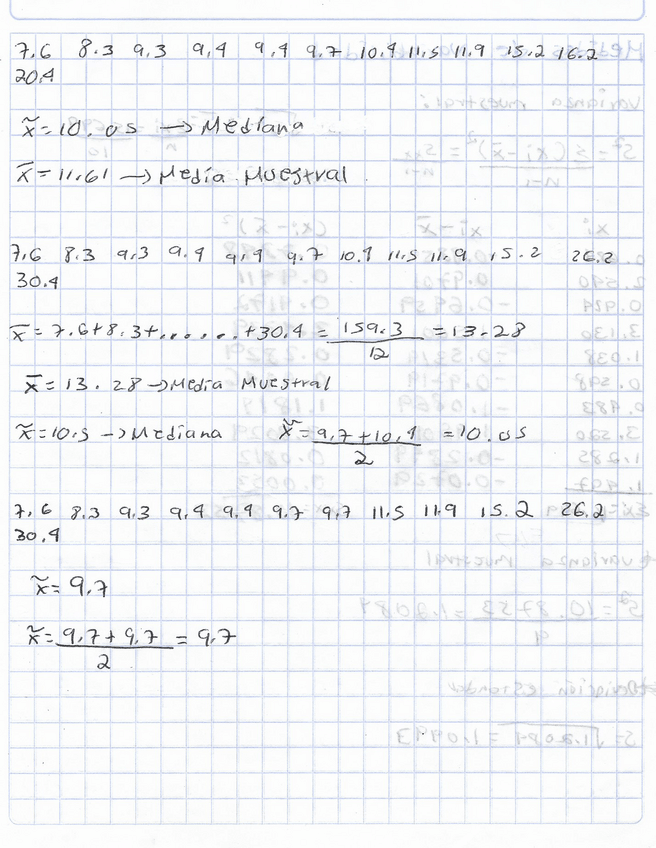 7.6 8.3 9.3 9.4 9.4 9.7 10.4 11.5 11.9 15.2 16.2
20.4
x̃ = 10.05 → Mediana
x̄ = 11.61 → Media Muestral
7.6 8.3 9.3 9.4 9.4 9.7 10.4 11.5 11.9 15.2 26.2
30.4
x̄ = 7.6+8.3+......+30.4 = 159.3/12 = 13.28
x̄ = 13.28 → Media Muestral
x̃ = 10.5 → Mediana x̃ = 9.7+10.4/2 = 10.05
7.6 8.3 9.3 9.4 9.4 9.7 9.7 11.5 11.9 15.2 26.2
30.4
x̃ = 9.7
x̃ = 9.7+9.7/2 = 9.7